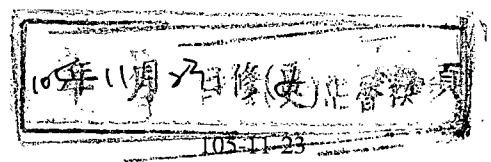 105年11月23日修(更)正替換頁
105-11-23